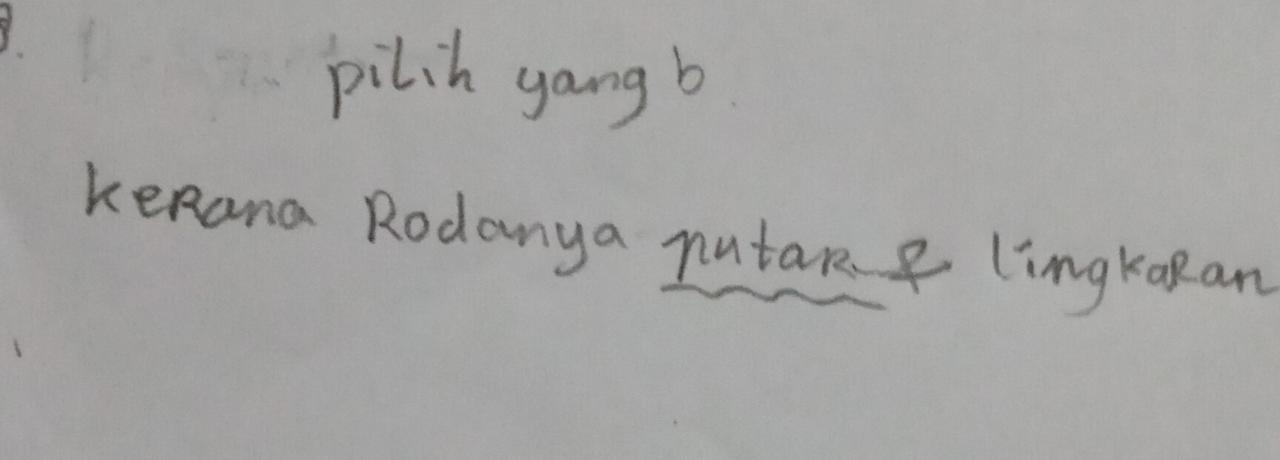 pilih yang b
kerana Rodanya putar & lingkaran